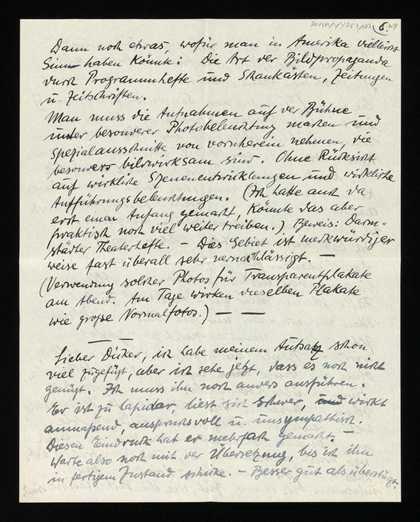 6.
Dann noch etwas, wofür man in Amerika vielleicht
Sinn haben könnte: Die Art der Bildpropaganda
durch Programmhefte und Schaukästen, Zeitungen
u. Zeitschriften.
Man muss die Aufnahmen auf der Bühne
unter besonderer Photobeleuchtung machen und
Spezialausschnitte von vornherein nehmen, die
besonders bildwirksam sind. Ohne Rücksicht
auf wirkliche Szenenentwicklungen und wirkliche
Aufführungsbeleuchtungen. (Ich hatte auch da
erst einen Anfang gemacht, könnte das aber
praktisch noch viel weiter treiben.) Beweis: Darm-
städter Theaterhefte. – Dies Gebiet ist merkwürdiger
weise fast überall sehr vernachlässigt. –
(Verwendung solcher Photos für Transparentplakate
am Abend. Am Tage wirken dieselben Plakate
wie große Normalfotos.) — —
Lieber Dicker, ich habe meinem Aufsatz schon
viel zugefügt, aber ich sehe jetzt, dass es noch nicht
genügt. Ich muss ihn noch anders ausführen.
Er ist zu lapidar, liest sich schwer, und wirkt
anmassend, anspruchsvoll u. unsympathisch.
Diesen Eindruck hat er mehrfach gemacht. –
Warte also noch mit der Übersetzung, bis ich ihn
in fertigem Zustand schicke. – Besser gut als überstürzt.